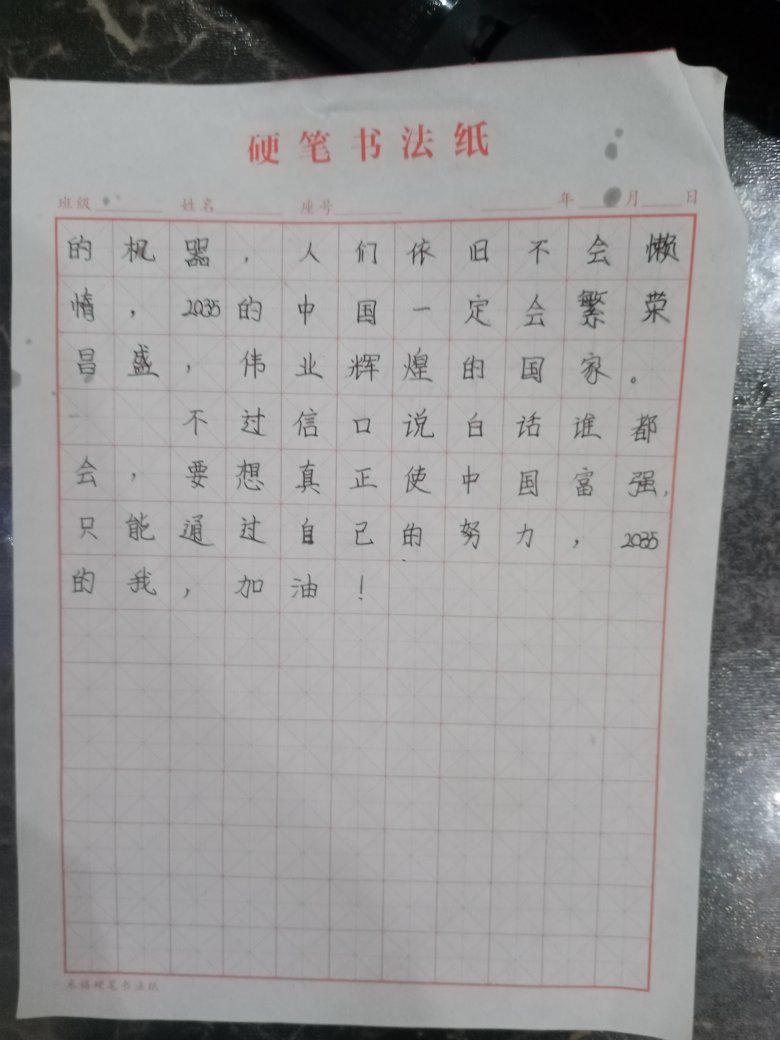 硬笔书法纸
班级 姓名 座号 年 月 日
的机器，人们依旧不会懒
惰，2035的中国一定会繁荣
昌盛，伟业辉煌的国家。
不过信口说白话谁都
会，要想真正使中国富强，
只能通过自己的努力，2035
的我，加油！
永福硬笔书法纸